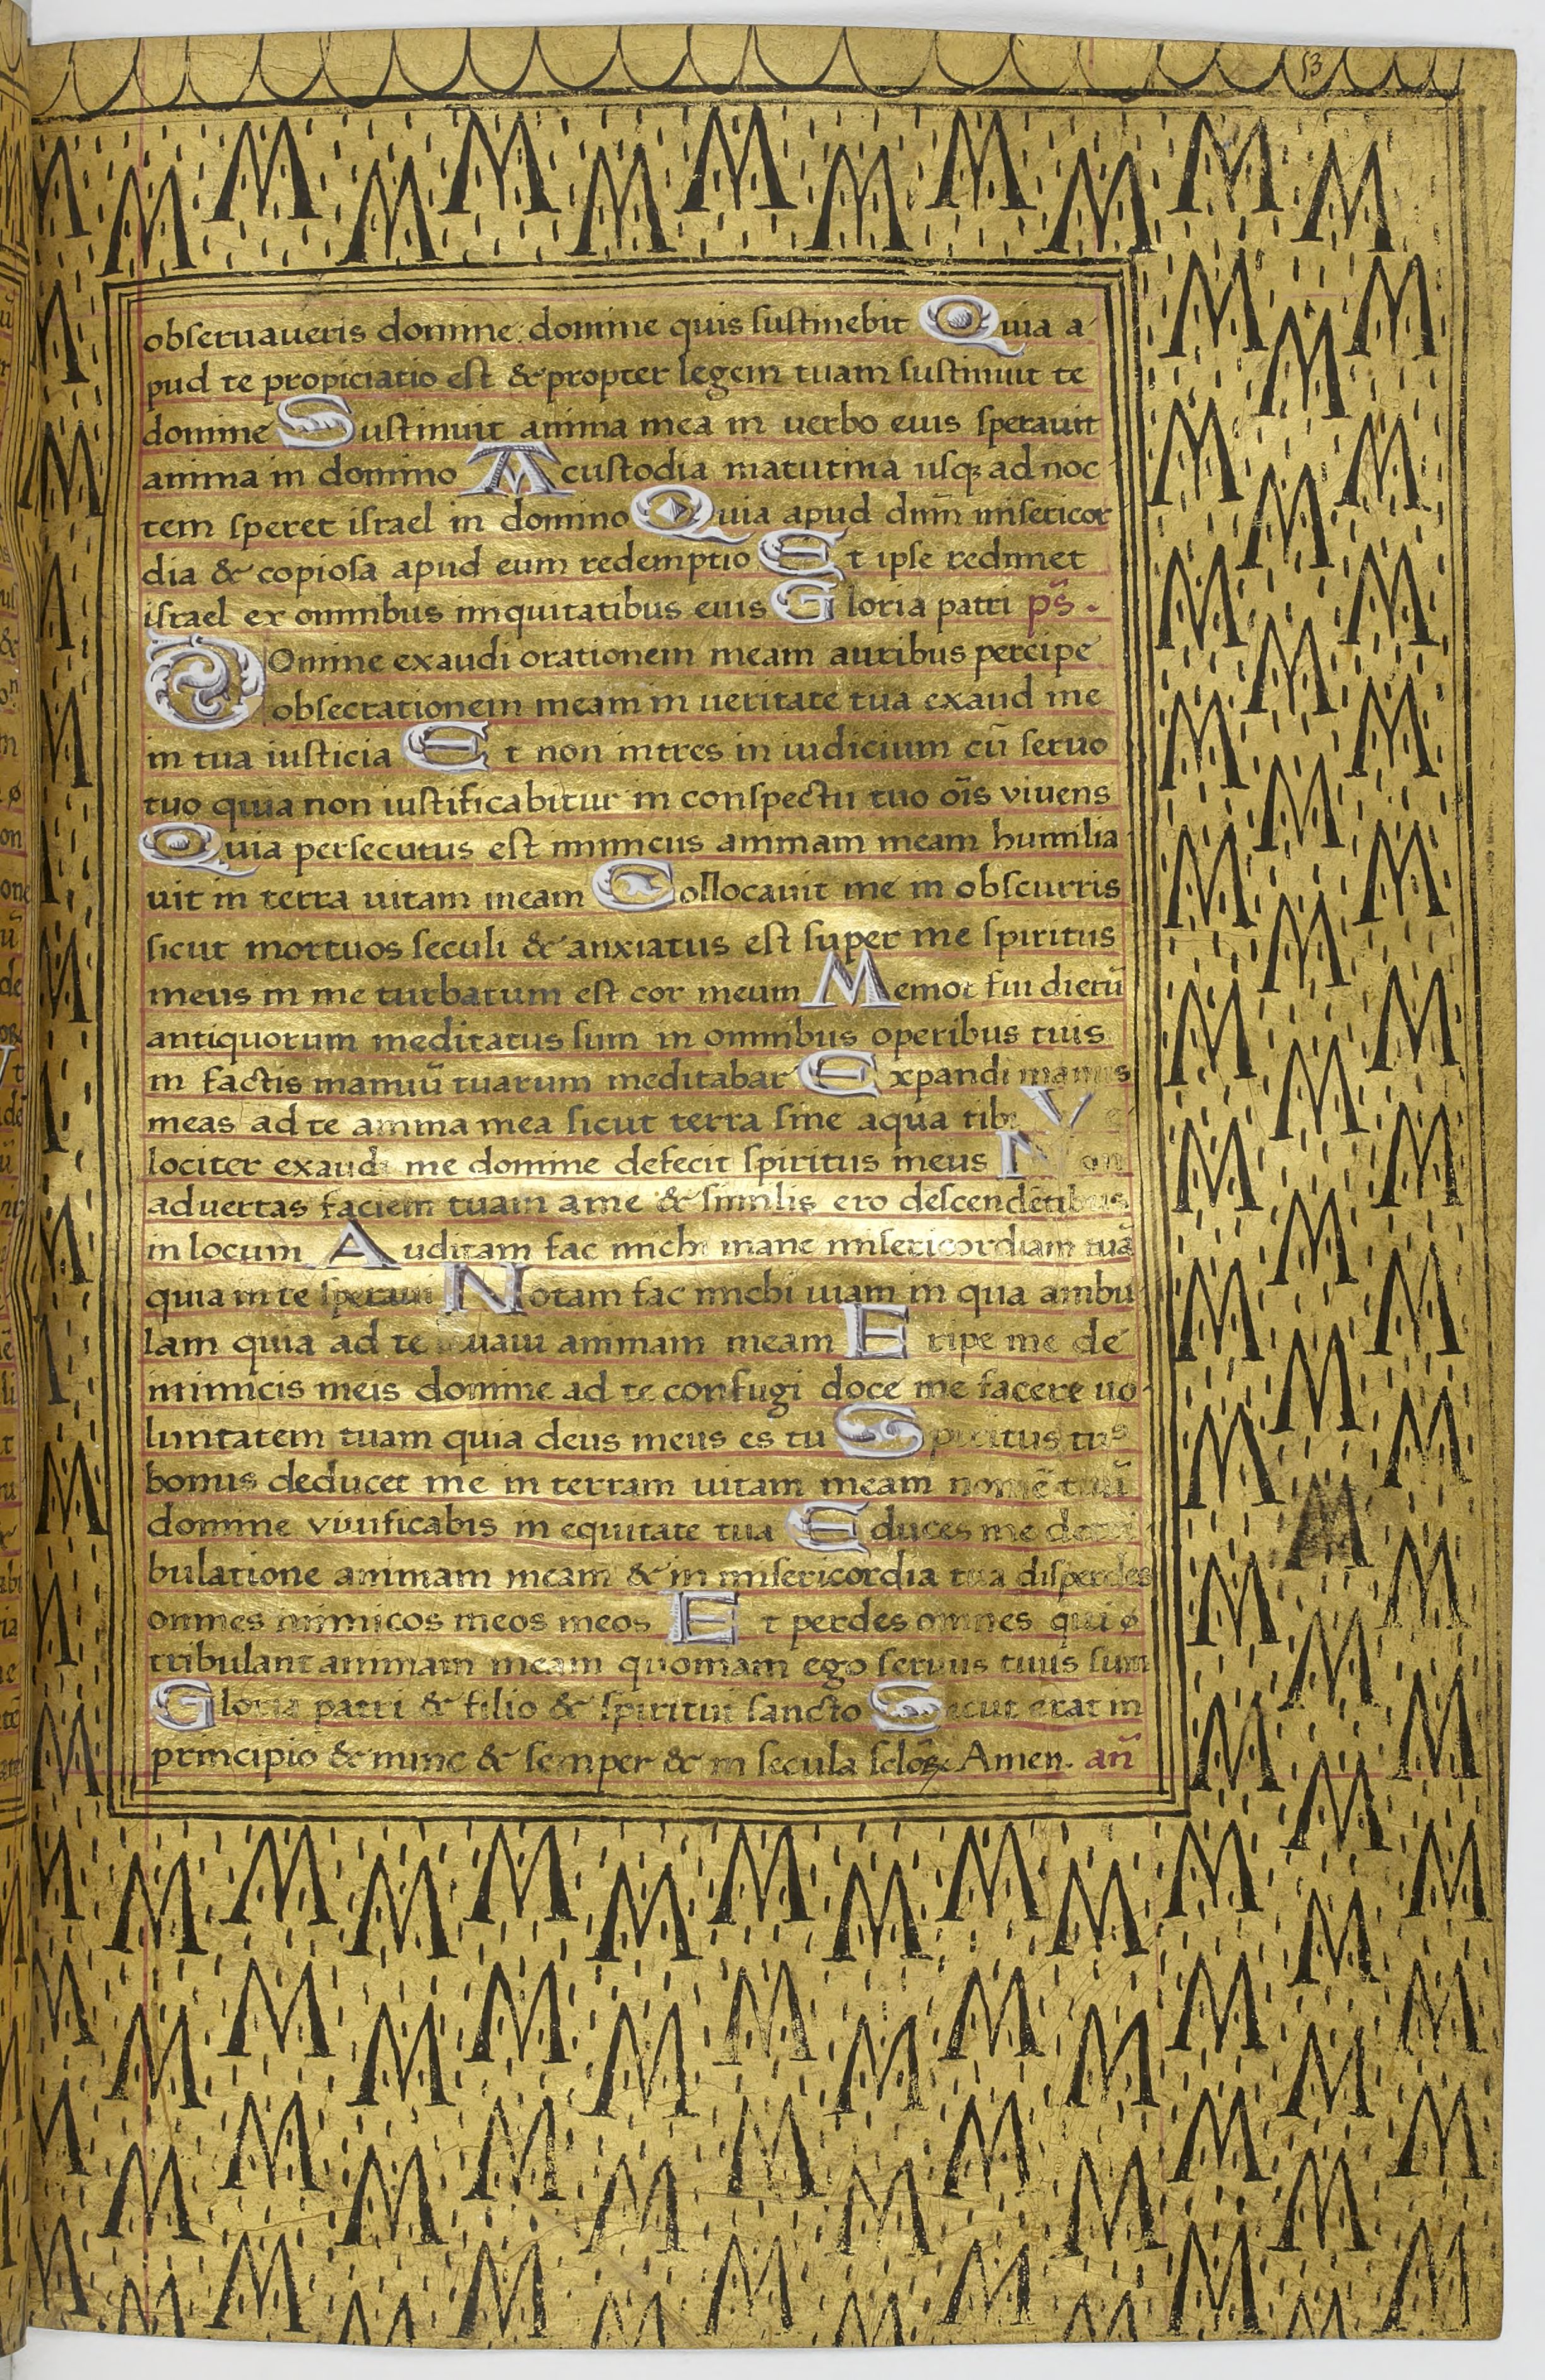 53
obseruaueris domine: domine quis sustinebit Quia a
pud te propiciatio est & propter legem tuam sustinuit te
domine Sustinuit anima mea in uerbo eius sperauit
anima in domino A custodia matutina usq; ad noc
tem speret israel in domino Quia apud dn̄m misericor
dia & copiosa apud eum redemptio Et ipse redimet
israel ex omnibus iniquitatibus eius Gloria patri ps̄.
Domine exaudi orationem meam auribus percipe
obsecrationem meam in ueritate tua exaud me
in tua iusticia Et non intres in iudicium cū seruo
tuo quia non iustificabitur in conspectu tuo oīs viuens
Quia persecutus est inimicus animam meam humilia
uit in terra uitam meam Collocauit me in obscurris
sicut mortuos seculi & anxiatus est super me spiritus
meus in me turbatum est cor meum Memor fui dierū
antiquorum meditatus sum in omnibus operibus tuis
in factis manuū tuarum meditabar Expandi manus
meas ad te anima mea sicut terra sine aqua tibi Ve
lociter exaudi me domine defecit spiritus meus Non
aduertas faciem tuam a me & similis ero descendētibus
in locum Auditam fac michi mane misericordiam tuā
quia in te speraui Notam fac michi uiam in qua ambu
lam quia ad te leuaui animam meam Eripe me de
inimicis meis domine ad te confugi doce me facere uo
luntatem tuam quia deus meus es tu Spiritus tus
bonus deducet me in terram uitam meam nomē tuū
domine viuificabis in equitate tua Educes me de tri
bulatione animam meam & in misericordia tua disperdes
omnes inimicos meos meos Et perdes omnes qui
tribulant animam meam quoniam ego seruus tuus sum
Gloria patri & filio & spiritui sancto Sicut erat in
principio & nunc & semper & in secula sclōꝝ. Amen. añ